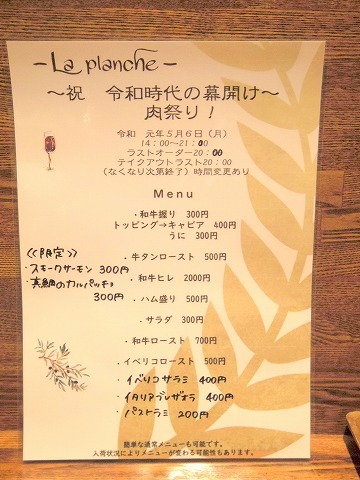 -La planche-
～祝 令和時代の幕開け～
肉祭り！
令和 元年５月６日（月）
14：00～21：00
ラストオーダー20：00
テイクアウトラスト20：00
（なくなり次第終了）時間変更あり
Menu
・和牛握り 300円
トッピング→キャビア 400円
うに 300円
《限定》
・スモークサーモン 300円
・真鯛のカルパッチョ
300円
・牛タンロースト 500円
・和牛ヒレ 2000円
・ハム盛り 500円
・サラダ 300円
・和牛ロースト 700円
・イベリコロースト 500円
・イベリコサラミ 400円
・イタリアブレザオラ 400円
・パストラミ 200円
簡単な通常メニューも可能です。
入荷状況によりメニューが変わる可能性もあります。